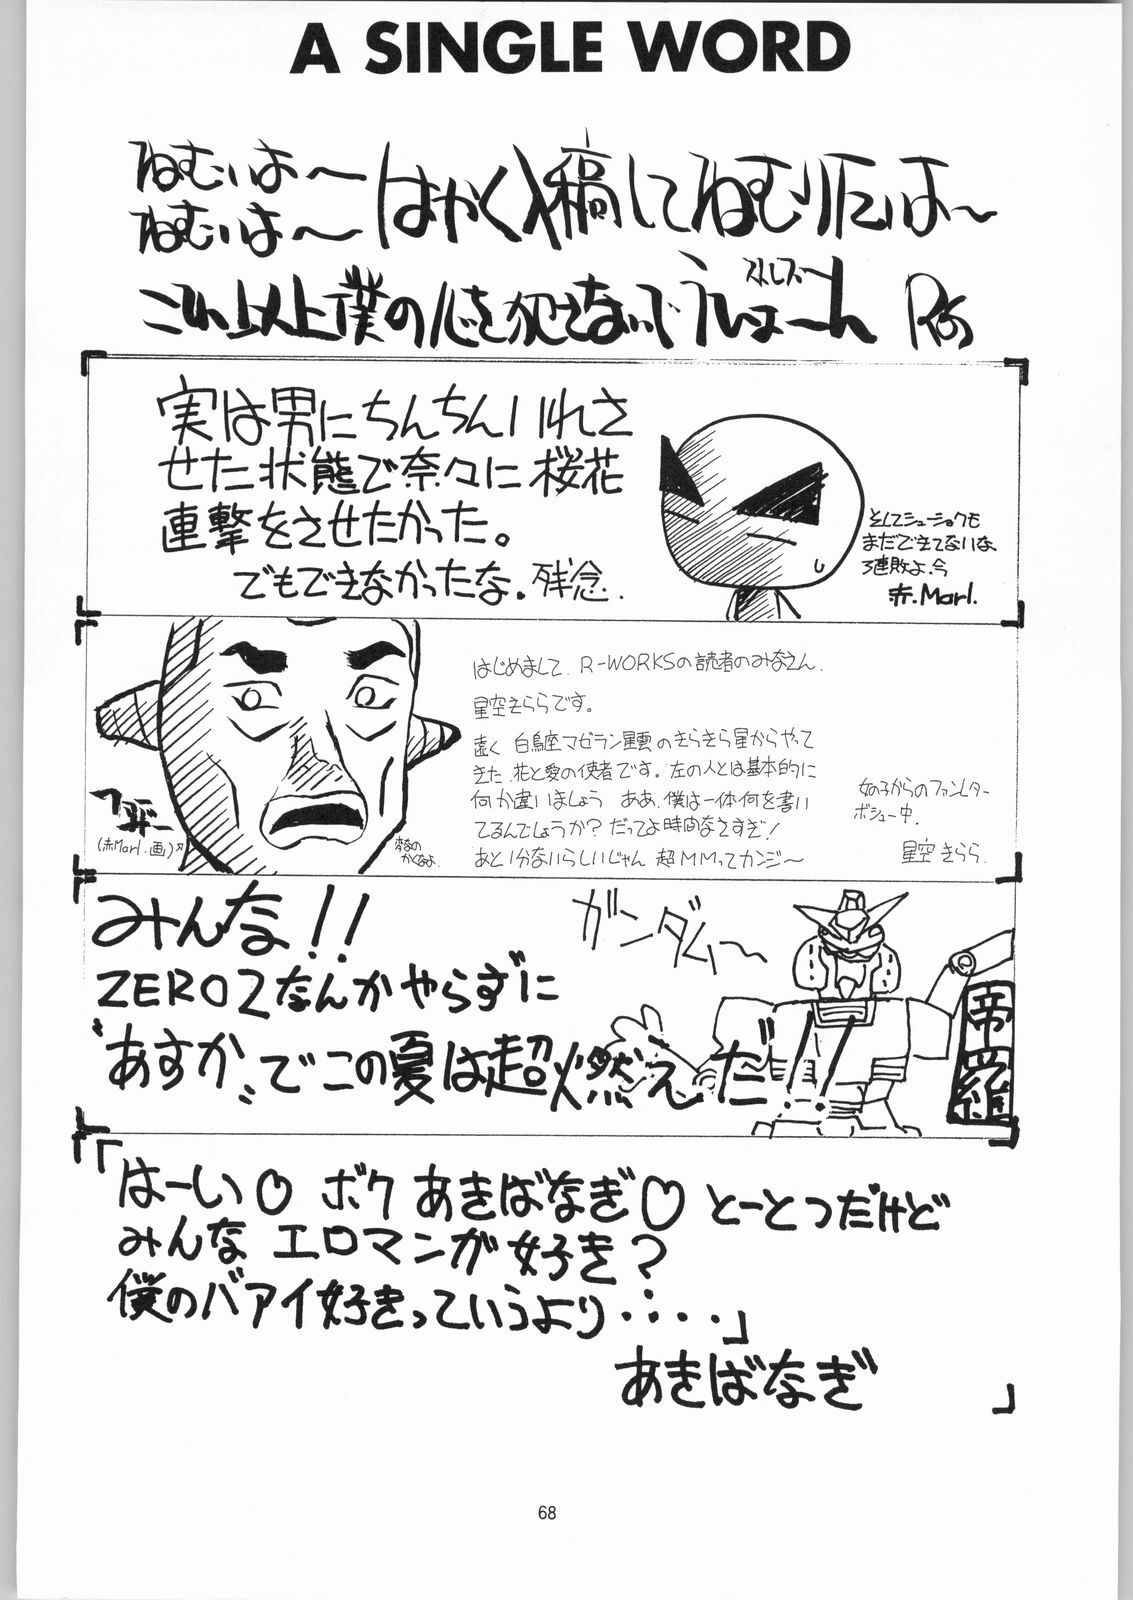 A SINGLE WORD
ねむいよ〜
ねむいよ〜
はやく入稿してねむりたいよ〜
これ以上僕の心を犯さないで
実は男にちんちんいれさ
せた状態で奈々に桜花
連撃をさせたかった。
でもできなかったな。残念.
そしてシューショクも
まだできてないな、
3連敗よ、今
赤.Marl.
はじめまして、R-WORKSの読者のみなさん、
星空きららです。
遠く 白鳥座マゼラン星雲のきらきら星からやって
きた、花と愛の使者です。左の人とは基本的に
何か違いましょう ああ、僕は一体何を書い
てるんでしょうか？だってよ時間なさすぎ！
あと1分ないらしいじゃん 超MMってカンジ〜
女の子からのファンレター
ボシュー中.
星空きらら.
(赤Marl.画)
みんな！！
ZERO2なんかやらずに
“あすか”でこの夏は超燃えだ！！
ガンダム〜
帝羅
「はーい♡ ボク あきばなぎ♡ とーとつだけど
みんな エロマンが好き？
僕のバアイ好きっていうより・・・・」
あきばなぎ
68